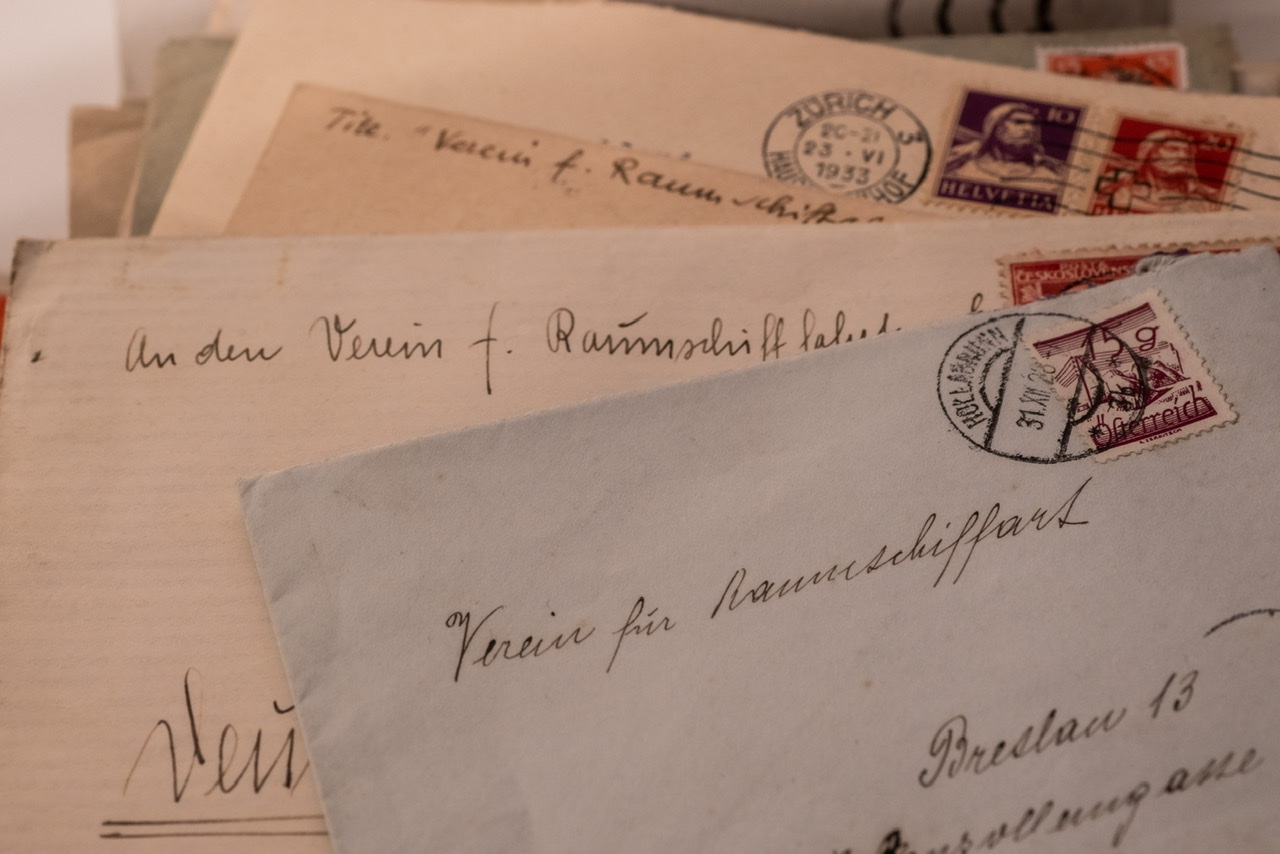 ZÜRICH 3
20-21
23·VI
1933
10
HELVETIA
20
Titl. "Verein f. Raumschiffahrt
ČESKOSLOVENS
An den Verein f. Raumschiffahrt
HOLLABRUNN
31.XII.28
5g
Österreich
Verein für Raumschiffart
Breslau 13